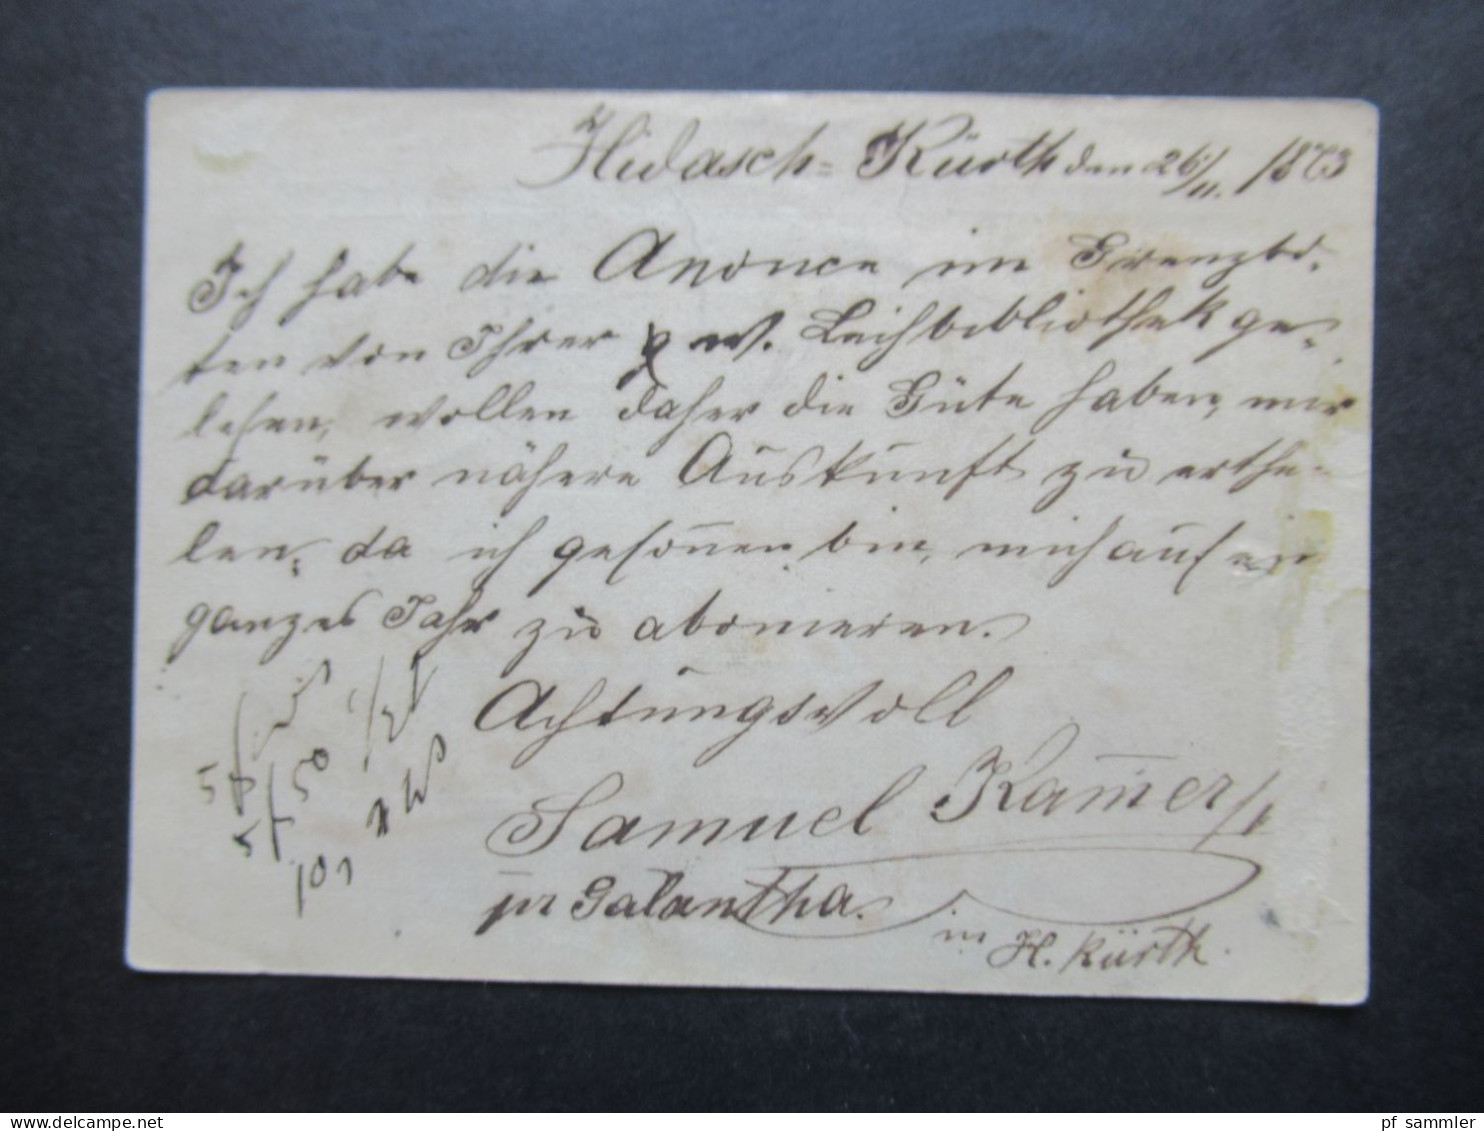 Hidasch-Kürth den 26/11. 1873
Ich habe die Anonce im Grenzbo-
ten von Ihrer w. Leihbibliothek ge-
lesen, wollen daher die Güte haben, mir
darüber nähere Auskunft zu erthe-
len, da ich gesonnen bin, mich auf ein
ganzes Jahr zu abonieren.
Achtungsvoll
Samuel Kam̄er
pr Galantha
in H. Kürth.
5 f
5 f 50
101
pf_sammler